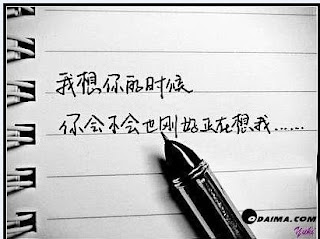 我想你的时候
你会不会也刚好正在想我......
DAIMA.COM
Yuki